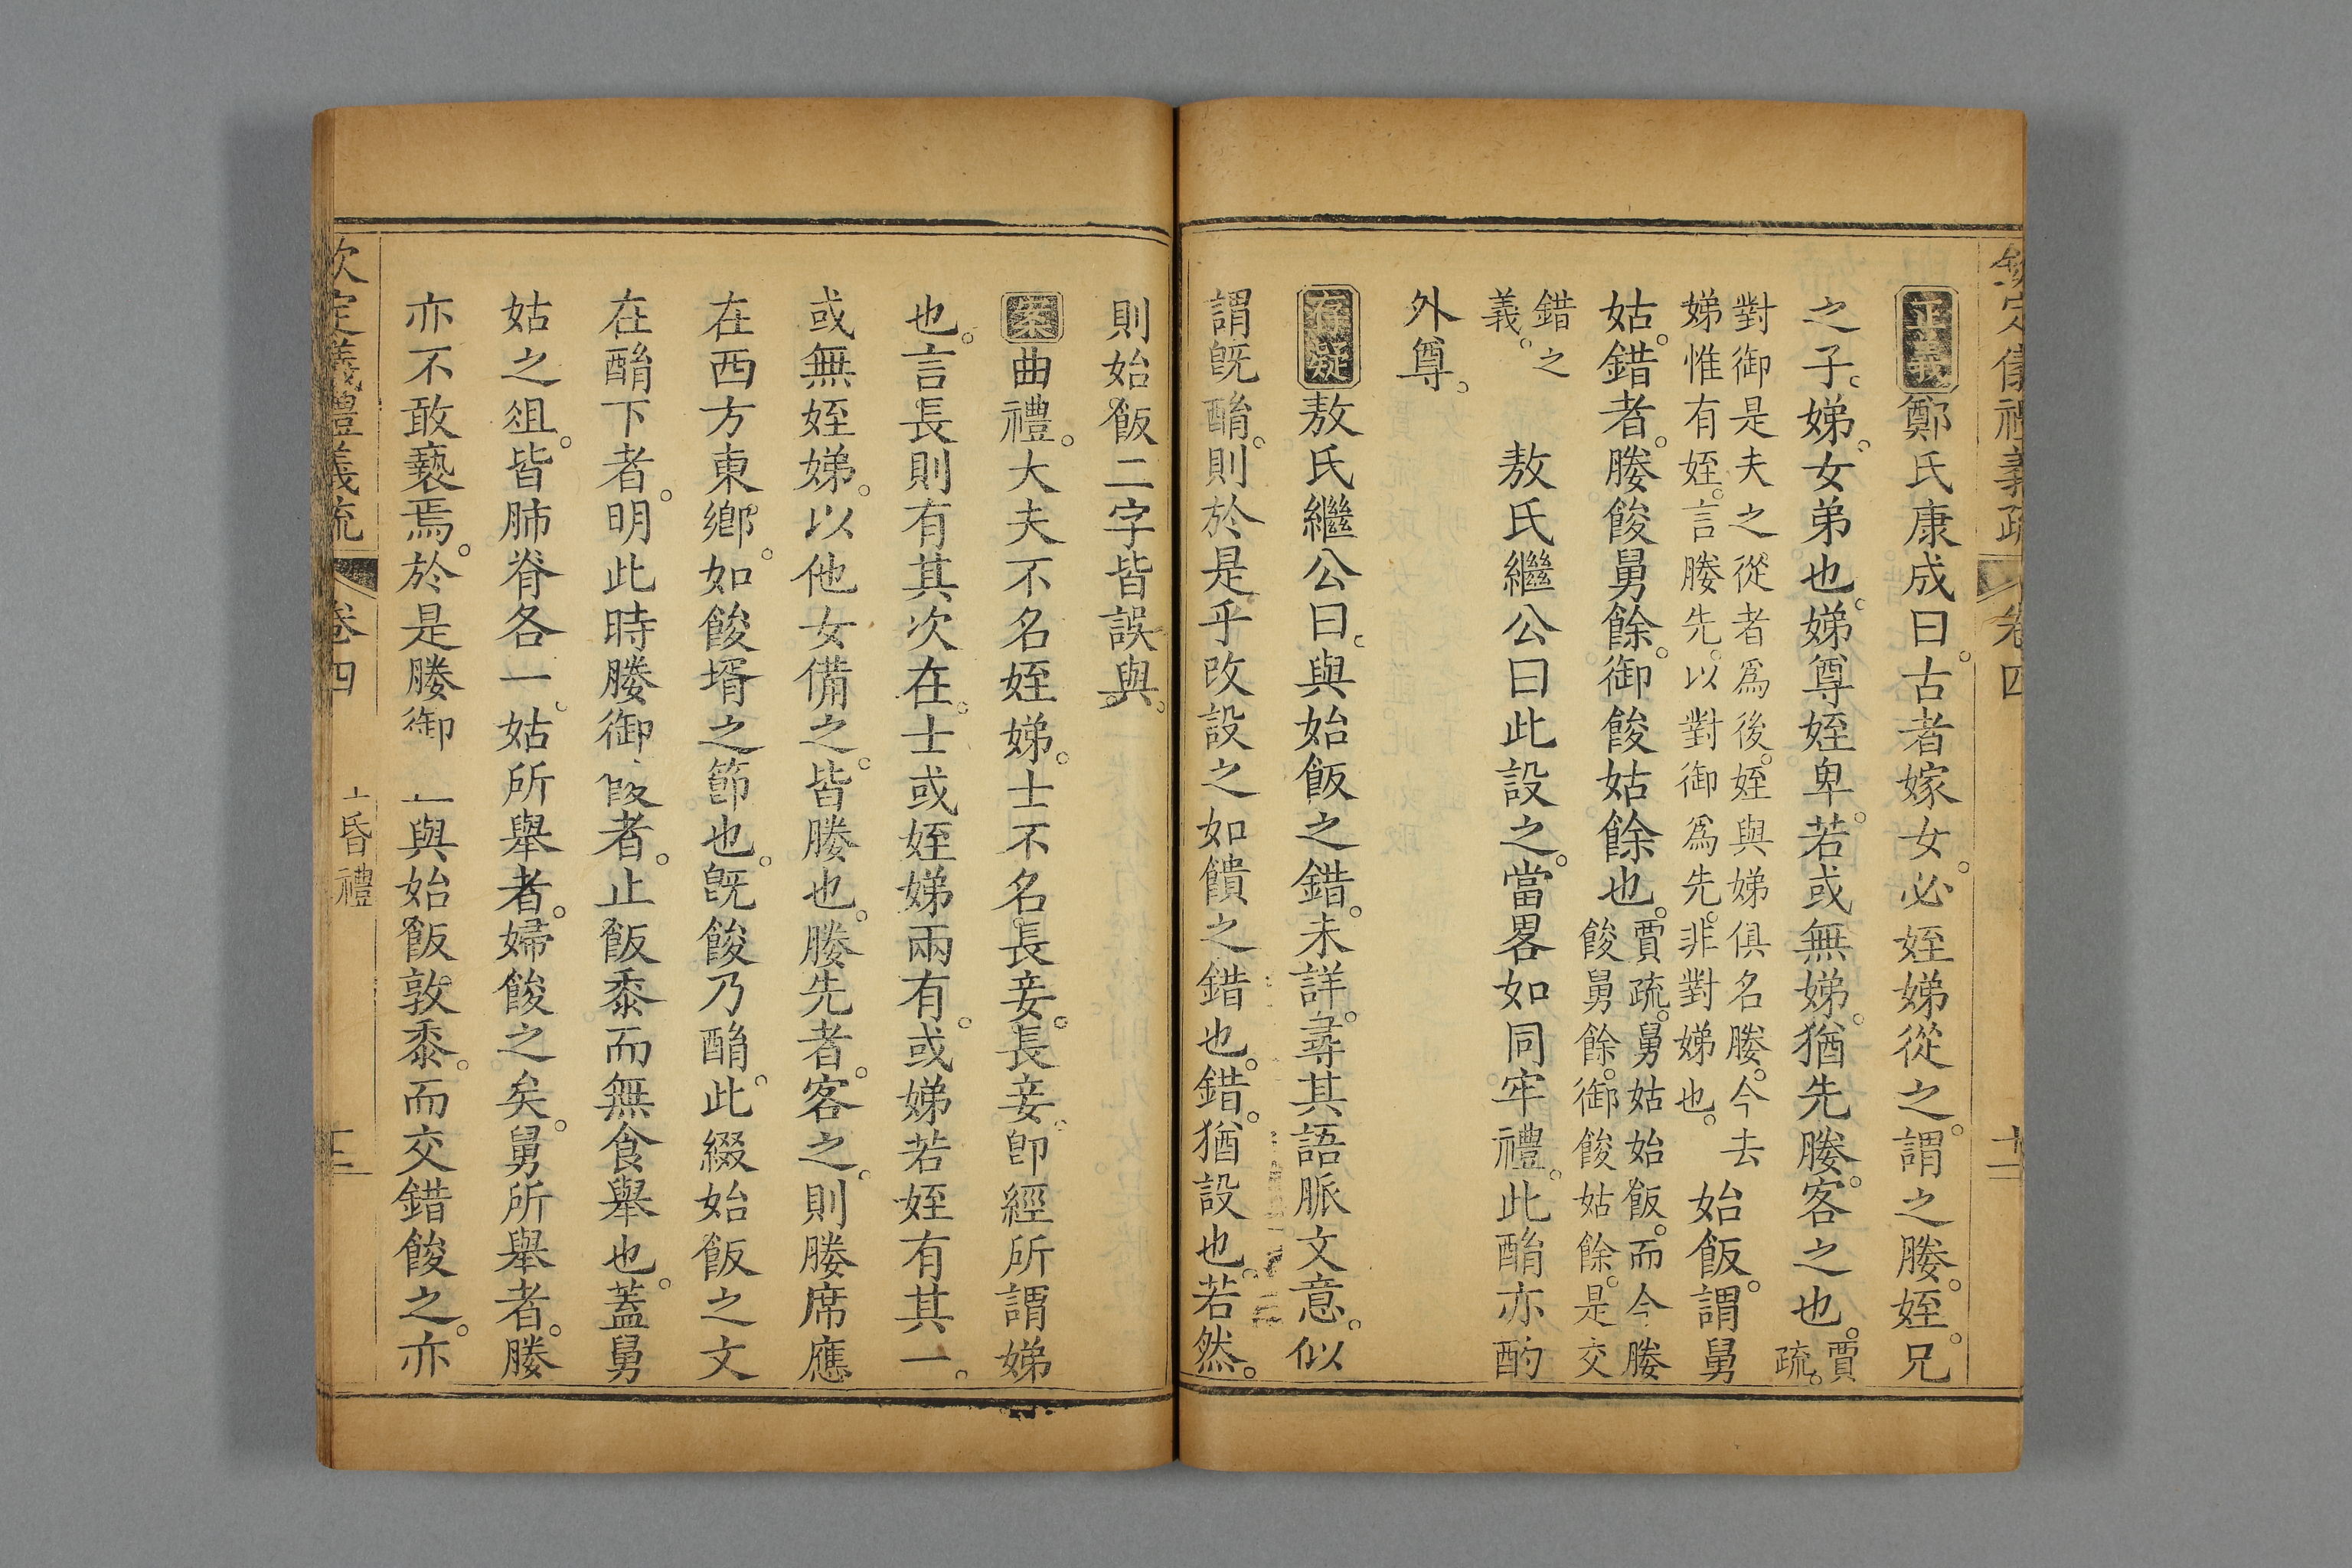 欽定儀禮義疏　卷四　十二
正義鄭氏康成曰。古者嫁女。必姪娣從之。謂之媵。姪。兄
之子。娣。女弟也。娣尊姪卑。若或無娣。猶先媵。客之也。賈
疏。
對御是夫之從者爲後。姪與娣俱名媵。今去
娣惟有姪。言媵先。以對御爲先。非對娣也。
始飯。謂舅
姑。錯者。媵餕舅餘。御餕姑餘也。
賈疏。舅姑始飯。而今媵
餕舅餘。御餕姑餘。是交
錯之
義。
敖氏繼公曰此設之。當畧如同牢禮。此酳亦酌
外尊。
存疑敖氏繼公曰。與始飯之錯。未詳。尋其語脈文意。似
謂既酳。則於是乎改設之如饋之錯也。錯。猶設也。若然。
則始飯二字皆誤與。
案曲禮。大夫不名姪娣。士不名長妾。長妾。卽經所謂娣
也。言長則有其次在。士或姪娣兩有。或娣若姪有其一。
或無姪娣。以他女備之。皆媵也。媵先者。客之。則媵席應
在西方東鄉。如餕壻之節也。旣餕乃酳。此綴始飯之文
在酳下者。明此時媵御飯者。止飯黍而無食舉也。蓋舅
姑之俎。皆肺脊各一。姑所舉者。婦餕之矣。舅所舉者。媵
亦不敢褻焉。於是媵御
與始飯敦黍。而交錯餕之。亦
欽定儀禮義疏　卷四　士昏禮